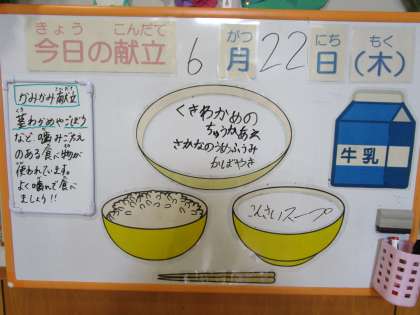 きょう こんだて
今日の献立
6 がつ 月 22 にち 日 もく (木)
かみかみ献立
茎わかめやごぼう
など噛みごたえ
のある食べ物が
使われています。
よく噛んで食べ
ましょう!!
くきわかめの
ちゅうかあえ
さかなのうめふうみ
かばやき
牛乳
さんさいスープ